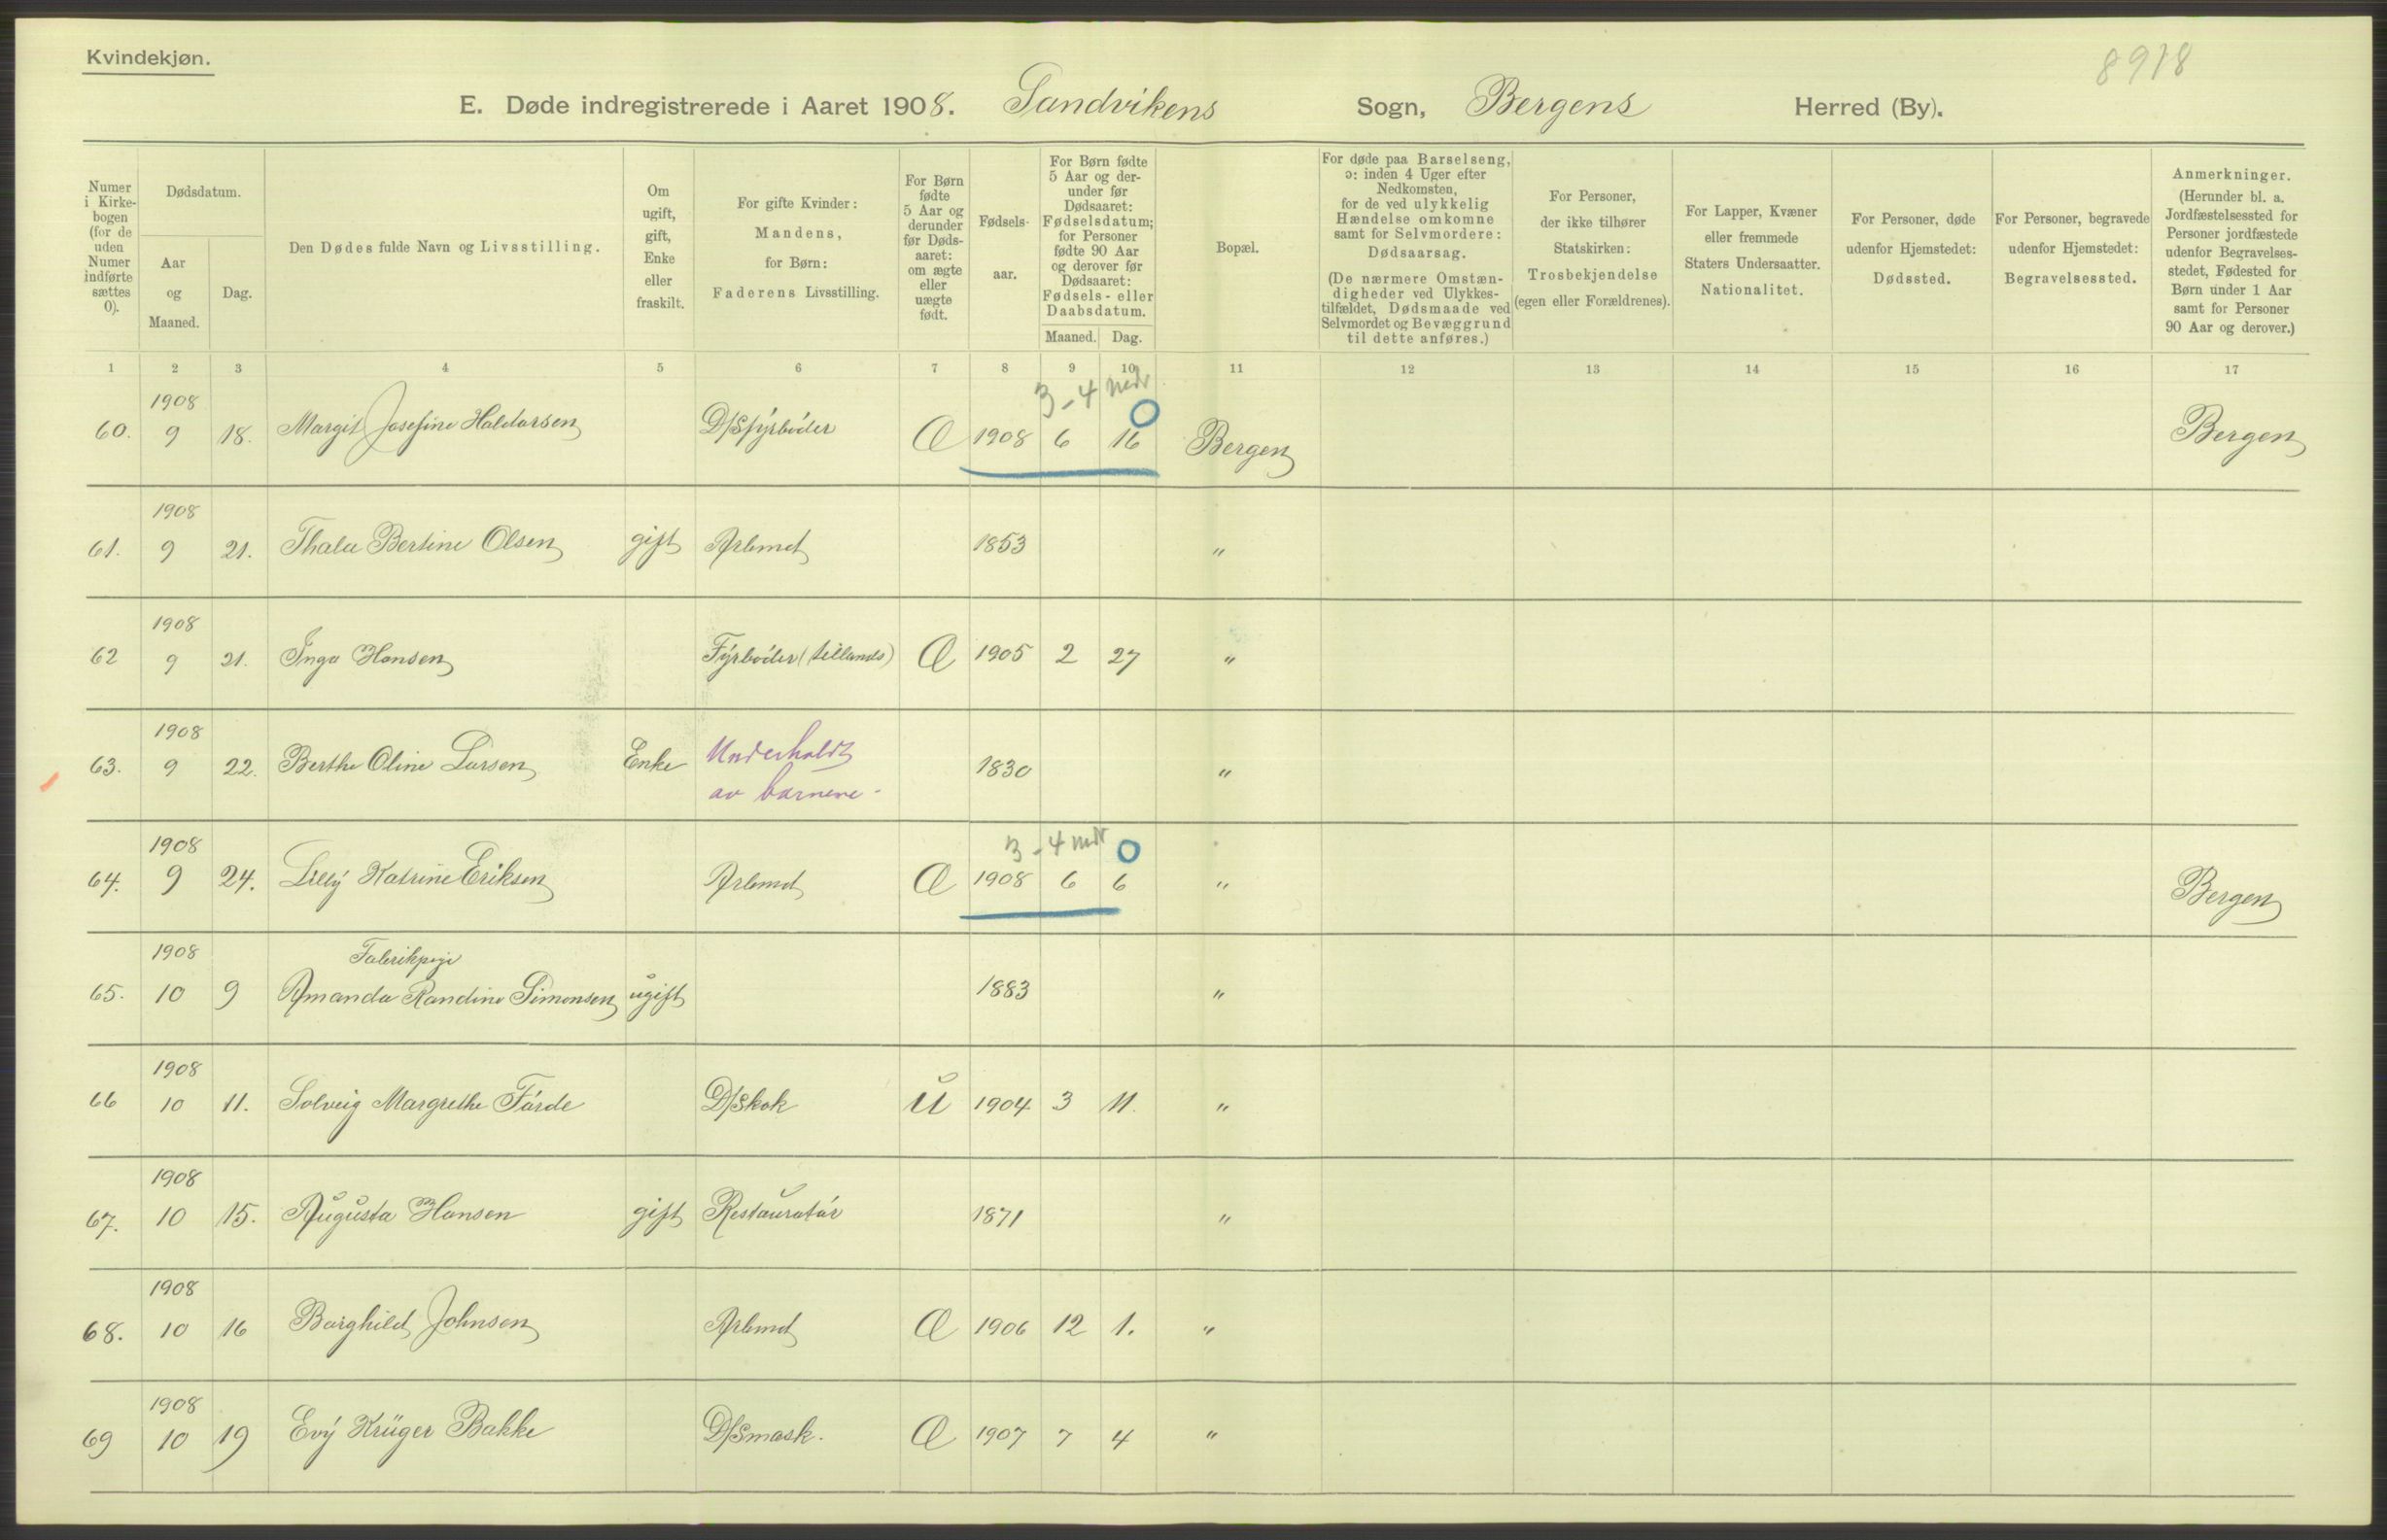 Kvindekjøn.
8918
E. Døde indregistrerede i Aaret 1908. Sandvikens Sogn, Bergens Herred (By).
Numer i Kirkebogen (for de uden Numer indførte sættes 0).
Dødsdatum.
Aar og Maaned.
Dag.
Den Dødes fulde Navn og Livsstilling.
Om ugift, gift, Enke eller fraskilt.
For gifte Kvinder: Mandens, for Børn: Faderens Livsstilling.
For Børn fødte 5 Aar og derunder før Dødsaaret: om ægte eller uægte født.
Fødselsaar.
For Børn fødte 5 Aar og derunder før Dødsaaret: Fødselsdatum; for Personer fødte 90 Aar og derover før Dødsaaret: Fødsels- eller Daabsdatum.
Maaned. Dag.
Bopæl.
For døde paa Barselseng, ɔ: inden 4 Uger efter Nedkomsten, for de ved ulykkelig Hændelse omkomne samt for Selvmordere: Dødsaarsag. (De nærmere Omstændigheder ved Ulykkestilfældet, Dødsmaade ved Selvmordet og Bevæggrund til dette anføres.)
For Personer, der ikke tilhører Statskirken: Trosbekjendelse (egen eller Forældrenes).
For Lapper, Kvæner eller fremmede Staters Undersaatter. Nationalitet.
For Personer, døde udenfor Hjemstedet: Dødssted.
For Personer, begravede udenfor Hjemstedet: Begravelsessted.
Anmerkninger. (Herunder bl. a. Jordfæstelsessted for Personer jordfæstede udenfor Begravelsesstedet, Fødested for Børn under 1 Aar samt for Personer 90 Aar og derover.)
1 2 3 4 5 6 7 8 9 10 11 12 13 14 15 16 17
1908 3-4 mdr 0
60. 9 18. Margit Josefine Haldorsen D/Sfyrbøder Æ 1908 6 16 Bergen Bergen
1908
61. 9 21. Thala Bertine Olsen gift Arbmd 1853 "
1908
62 9 21. Inga Hansen Fyrbøder (tillands) Æ 1905 2 27 "
1908
63. 9 22. Berthe Oline Larsen Enke Underholdt 1830 "
av barnene -
1908 3-4 mdr 0
64. 9 24. Lilly Katrine Eriksen Arbmd Æ 1908 6 6 " Bergen
1908 Fabrikpige
65. 10 9 Amanda Randine Simonsen ugift 1883 "
1908
66 10 11. Solveig Margrethe Førde D/Skok U 1904 3 11. "
1908
67. 10 15. Augusta Hansen gift Restauratør 1871 "
1908
68. 10 16 Borghild Johnsen Arbmd Æ 1906 12 1. "
1908
69 10 19 Evy Krüger Bakke D/Smask. Æ 1907 7 4 "